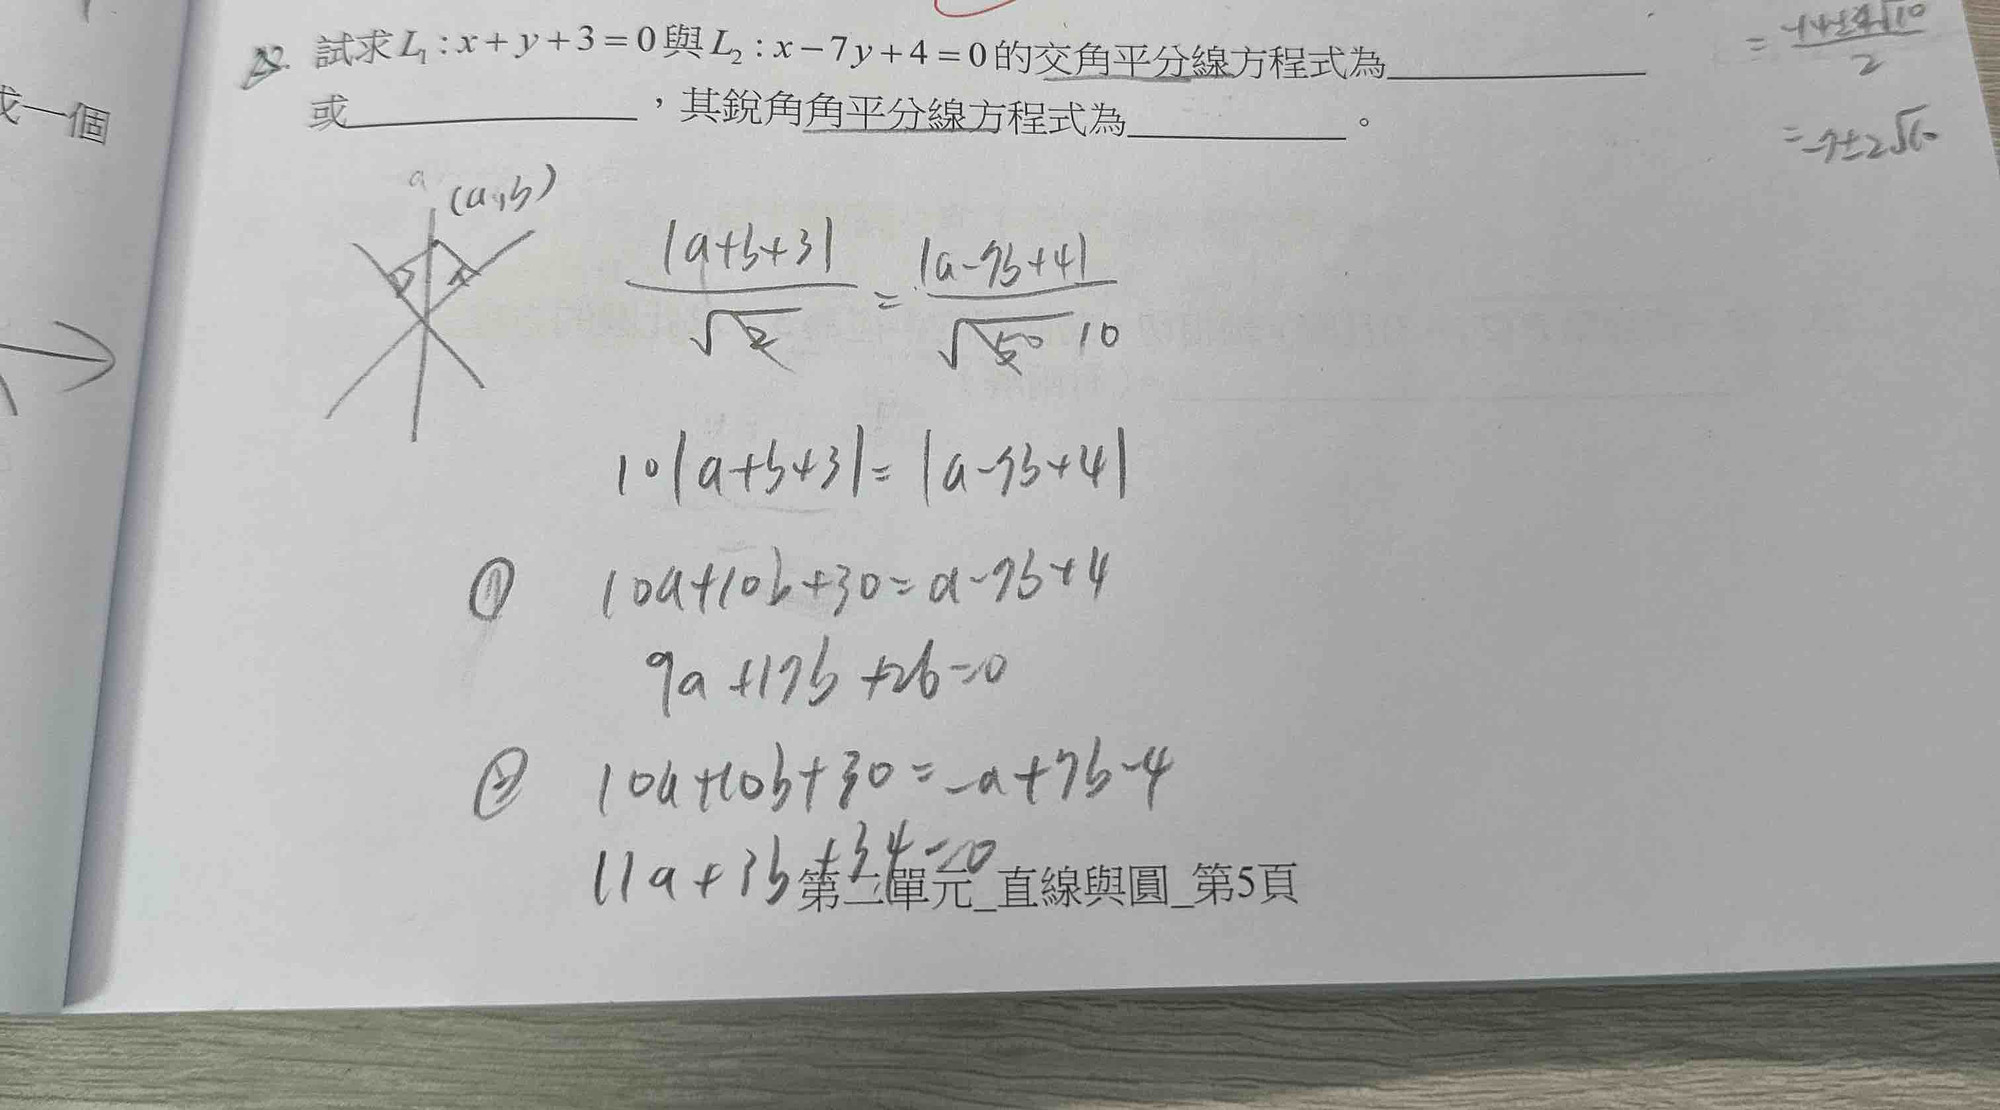 試求L₁:x+y+3=0與L₂:x-7y+4=0的交角平分線方程式為__________
或__________，其銳角角平分線方程式為__________。
一個
= (-14±4√10)/2
= -7±2√10
a (a,b)
|a+b+3|/√2 = |a-7b+4|/√50 10
10|a+b+3|=|a-7b+4|
① 10a+10b+30=a-7b+4
9a+17b+26=0
② 10a+10b+30=-a+7b-4
11a+3b+34=0
第二單元_直線與圓_第5頁